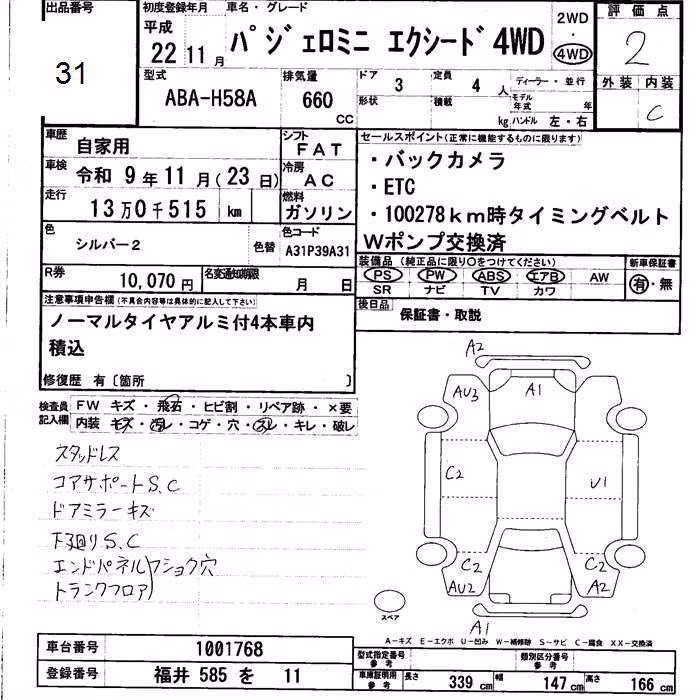 出品番号
31
初度登録年月 車名・グレード
平成 22 11 月
パジェロミニ エクシード 4WD
2WD
・
4WD
評価点
2
外装 内装
C
型式
ABA-H58A
排気量
660 CC
ドア 3
形状
定員 4 人
積載 kg
ディーラー・並行
モデル年式 年
ハンドル 左・右
車歴 自家用
車検 令和 9 年 11 月 ( 23 日)
走行 13万0千515 km
シフト FAT
冷房 AC
燃料 ガソリン
色 シルバー2 色替
色コード A31P39A31
R券 10,070 円
名変通知期限 月 日
セールスポイント(正常に機能するものに限ります)
・バックカメラ
・ETC
・100278km時タイミングベルト
Wポンプ交換済
装備品(純正品に限り○をつけてください)
PS PW ABS エアB AW
SR ナビ TV カワ
新車保証書
有・無
後日品 保証書・取説
注意事項申告欄(不具合内容等は具体的に記入して下さい)
ノーマルタイヤアルミ付4本車内
積込
修復歴 有〔箇所 〕
検査員記入欄
FW キズ・飛石・ヒビ割・リペア跡・×要
内装 キズ・汚レ・コゲ・穴・スレ・キレ・破レ
スタッドレス
コアサポートS.C
ドアミラーキズ
下廻りS.C
エンドパネル
トランクフロア
フショク穴
A2
AU3
A1
C2
U1
C2
AU2
C2
A2
A1
スペア
A-キズ E-エクボ U-凹み W-補修跡 S-サビ C-腐食 XX-交換済
車台番号 1001768
登録番号 福井 585 を 11
型式指定番号 参考
類別区分番号 参考
車庫証明用 参考
長さ 339 cm 幅 147 cm 高さ 166 cm